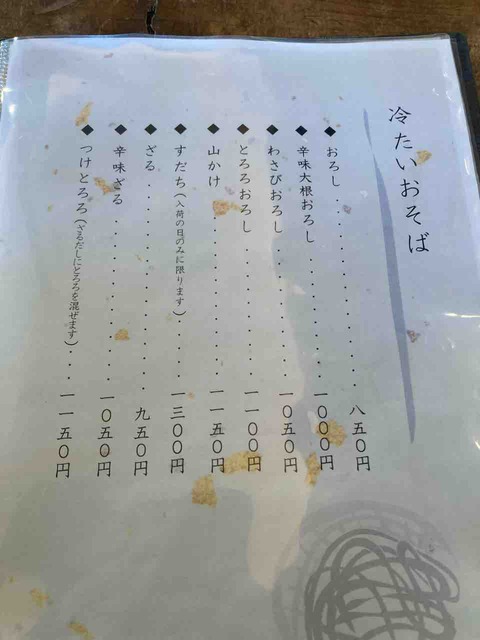 冷たいおそば
◆おろし............八五〇円
◆辛味大根おろし............一〇〇〇円
◆わさびおろし............一〇五〇円
◆とろろおろし............一一〇〇円
◆山かけ............一一五〇円
◆すだち(入荷の日のみに限ります)............一三〇〇円
◆ざる............九五〇円
◆辛味ざる............一〇五〇円
◆つけとろろ(ざるだしにとろろを混ぜます)...一一五〇円